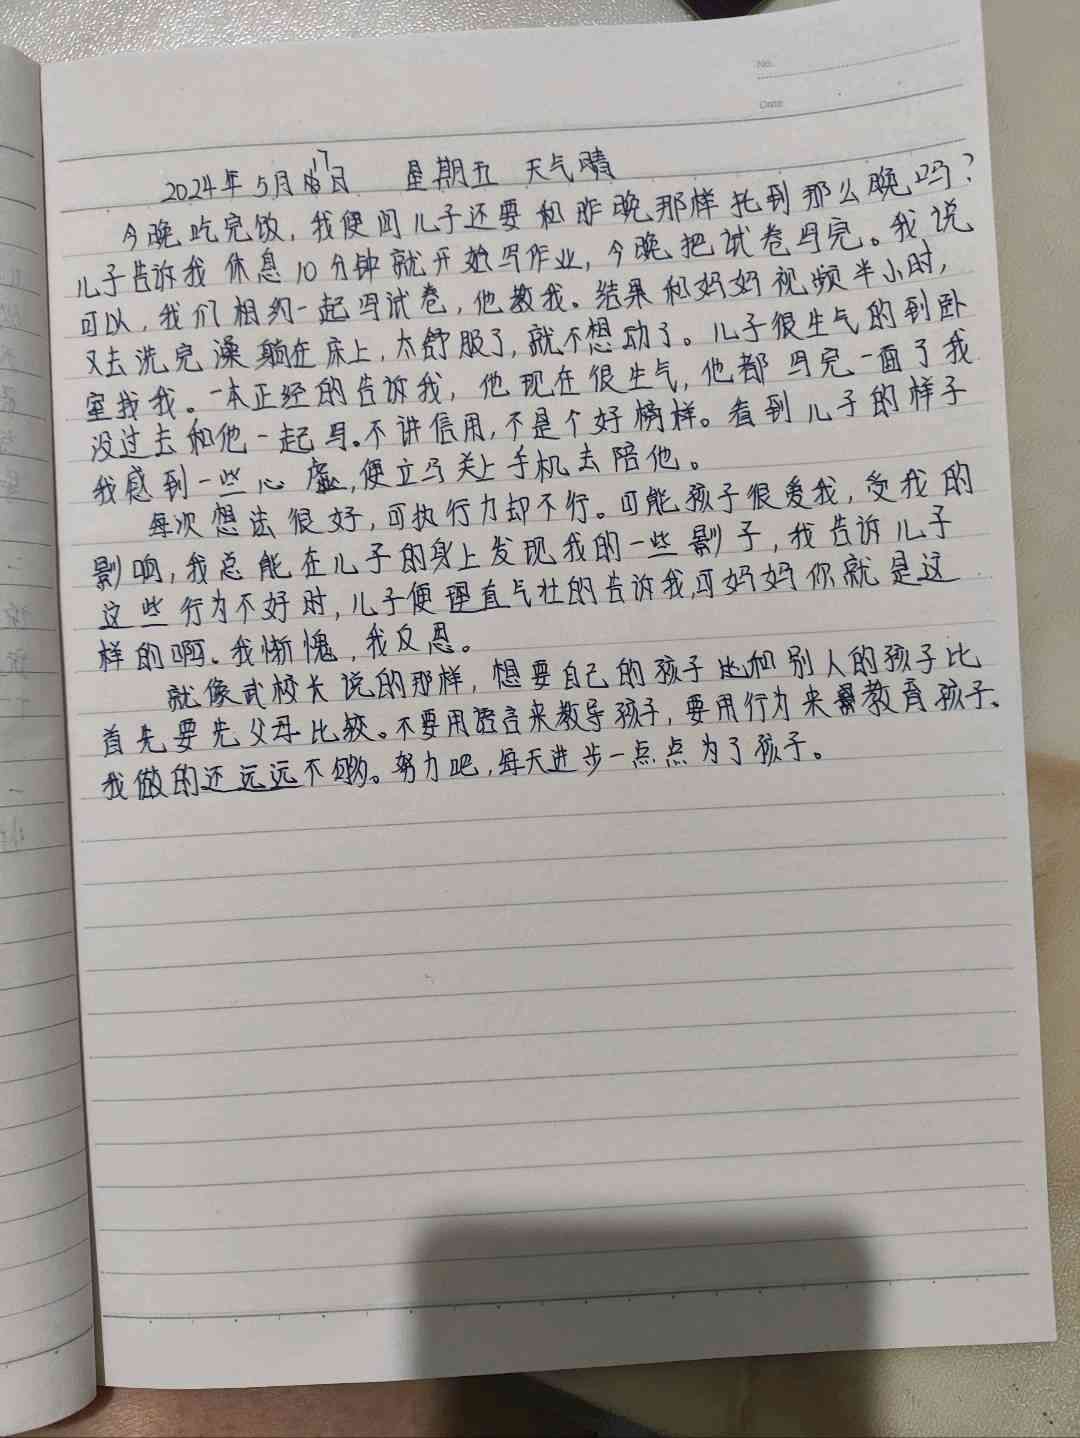 No.
Date
2024年5月17日 星期五 天气晴
今晚吃完饭，我便问儿子还要和昨晚那样托到那么晚吗？
儿子告诉我休息10分钟就开始写作业，今晚把试卷写完。我说
可以，我们相约一起写试卷，他教我。结果和妈妈视频半小时，
又去洗完澡躺在床上，太舒服了，就不想动了。儿子很生气的到卧
室找我。一本正经的告诉我，他现在很生气，他都写完一面了我
没过去和他一起写。不讲信用，不是个好榜样。看到儿子的样子
我感到一些心虚，便立马关上手机去陪他。
每次想法很好，可执行力却不行。可能孩子很爱我，受我的
影响，我总能在儿子的身上发现我的一些影子，我告诉儿子
这些行为不好时，儿子便理直气壮的告诉我，可妈妈你就是这
样的啊。我惭愧，我反思。
就像武校长说的那样，想要自己的孩子和别人的孩子比
首先要先父母比较。不要用语言来教导孩子，要用行为来教育孩子。
我做的还远远不够。努力吧，每天进步一点点为了孩子。